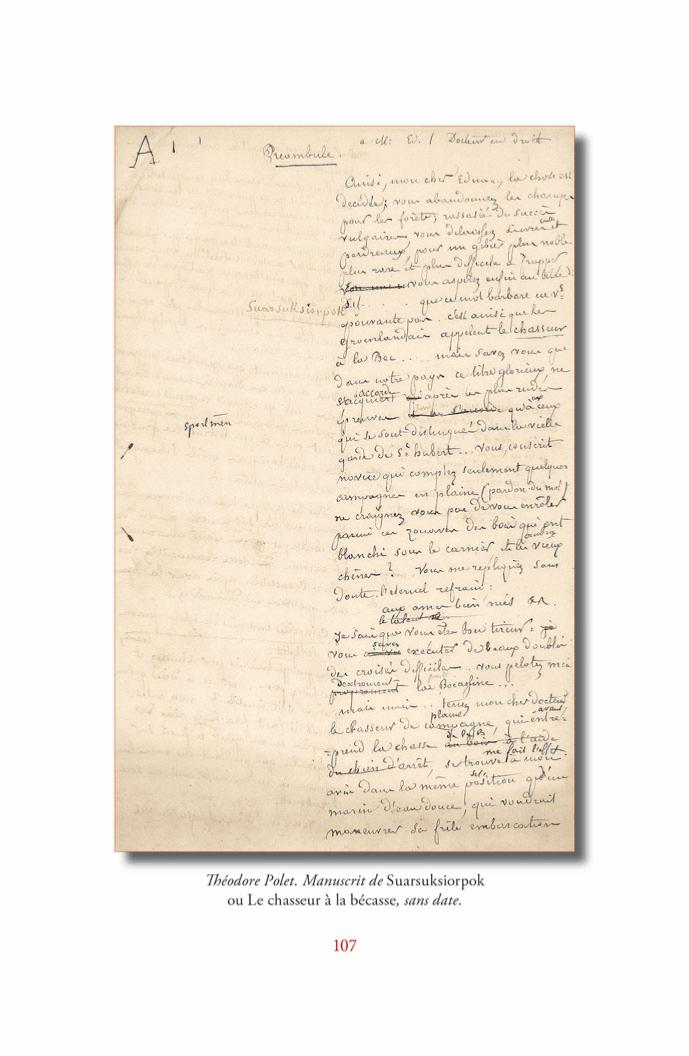 A 1
a M: Ed. / Docteur en droit
Préambule.
Ainsi, mon cher Edm..., la chose est
décidée; vous abandonnez les champs
pour les forêts; rassasié du succès
vulgaire vous délaissez Lièvres et
perdreaux, pour un gibier plus noble
plus rare et plus difficile a frapper
vous aspirez enfin au titre de
Suarsuksiorpok
S... que ce mot barbare ne vs
épouvante pas. c'est ainsi que les
Groenlandais appelent le chasseur
à la Bec.... mais savez vous que
dans notre pays ce titre glorieux ne
s'acquiert accordé après les plus rudes
épreuves qu'à ceux
sportmen
qui se sont distingués dans la vieille
garde de St hubert... Vous, conscrit
novice qui comptez seulement quelques
campagnes en plaine (pardon du mot)
ne craignez vous pas de vous enrôler
parmi ces zouaves des bois qui ont
blanchi sous le carnier et les vieux
chênes? Vous me répliquez sans
doute: l'éternel refrain:
aux ames bien nées &a.
Je sais que vous êtes bon tireur:
vous savez exécuter de beaux doublés
des croisés difficiles.. vous pelotez
dextrement proprement la Bécassine...
mais mais.. tenez mon cher docteur
le chasseur de campagne plaine, qui entre-
-prend la chasse au bois à l'aide
du chien d'arrêt, me fait l'effet
se trouve à mon
avis dans la même position qu'un
marin d'eau douce, qui voudrait
manœuvrer sa frêle embarcation
Théodore Polet. Manuscrit de Suarsuksiorpok
ou Le chasseur à la bécasse, sans date.
107